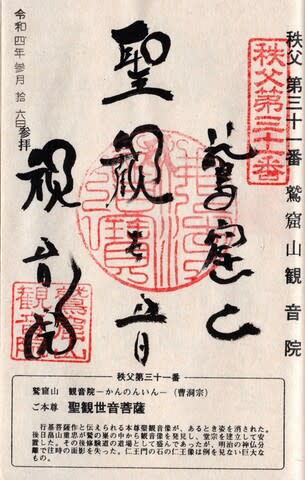 秩父 第三十一番 鷲窟山観音院
秩父第三十一番
鷲窟山
聖観世音
観音院
令和四年 参月 拾六日参拝
鷲窟山
観音院
秩父第三十一番
鷲窟山 観音院―かんのんいん―(曹洞宗)
ご本尊 聖観世音菩薩
行基菩薩作と伝えられる本尊聖観音像が、あるとき姿を消された。
後日畠山重忠が鷲の巣の中から観音像を発見し、堂宗を建立して安
置した。その後修験道の道場として盛んであったが、明治の神仏分
離で往時の面影を失った。仁王門の石の仁王像は例を見ない巨大な
もの。